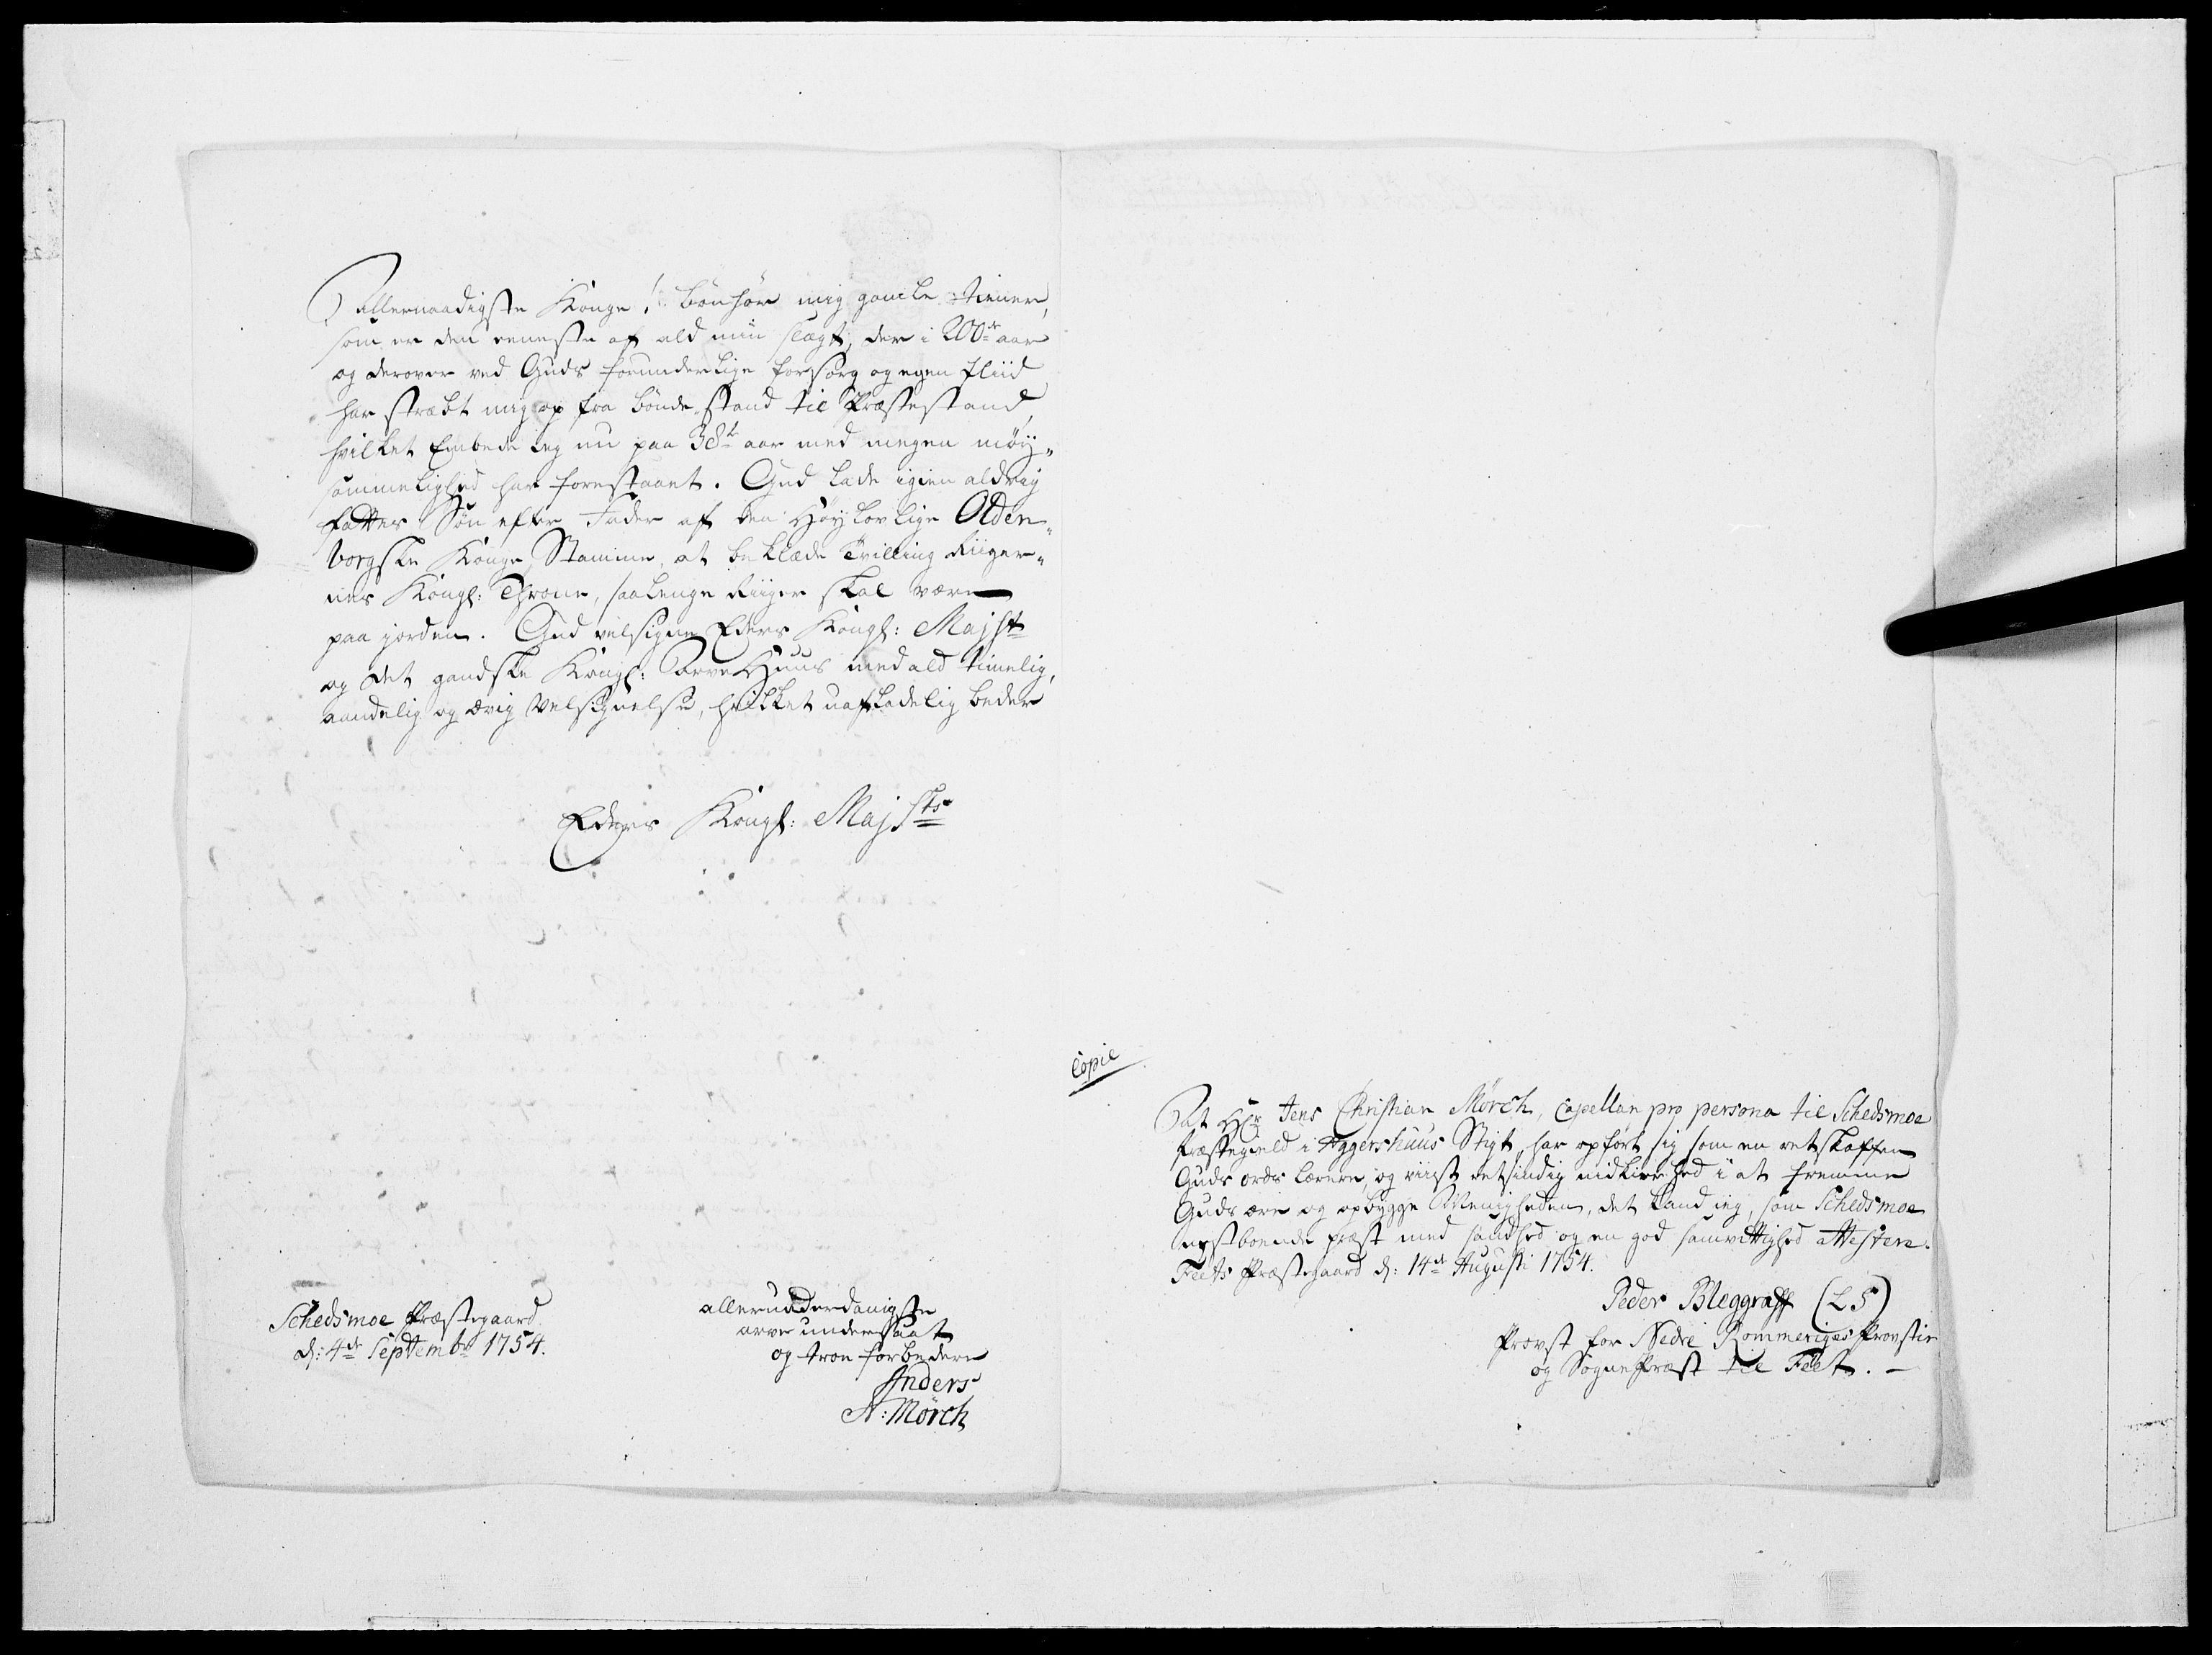 Allernaadigste Konge! bønhør mig gamle tiener,
som er den eeneste af ald min slægt, der i 200de aar
og derover ved Guds forunderlige forsorg og egen fliid
har stræbt mig op fra bonde stand til Præstestand,
hvilket Embede jeg nu paa 38te aar med megen møy-
sommelighed har forestaaet. Gud lade igien aldrig
fattes Søn efter Fader af den Høylovlige Olden-
borgske Konge Stamme, at beklæde Tvilling Riiger-
nes Kongl: Throne, saalenge Riiger skal være
paa jorden. Gud velsigne Eders Kongl: Majst
og det gandske Kongl: Arve Huus med ald timelig,
aandelig og ævig Velsignelse, hvilket uafladelig beder
Eders Kongl: Majsts
Schedsmoe Præstegaard
d: 4de Septembr 1754.
allerunderdanigste
arve undersaat
og troe forbedere
Anders
N: Mörch
Copie
At Hr Jens Christian Mörch, Capellan pro persona til Schedsmoe
Præstegield i Aggershuus Stigt, har opført sig som en retskaffen
Guds ords lærere, og viist retsindig nidkierhed i at fremme
Guds ære og opbygge Menigheden, det kand jeg, som Schedsmoe
nestboende præst med sandhed og en god samvittighed attestere.
Feets Præstegaard d: 14de Augusti 1754.
Peder Bleggraff (LS)
Provst for Nedre Rommeriges Provstie
og SognePræst til Feet. —